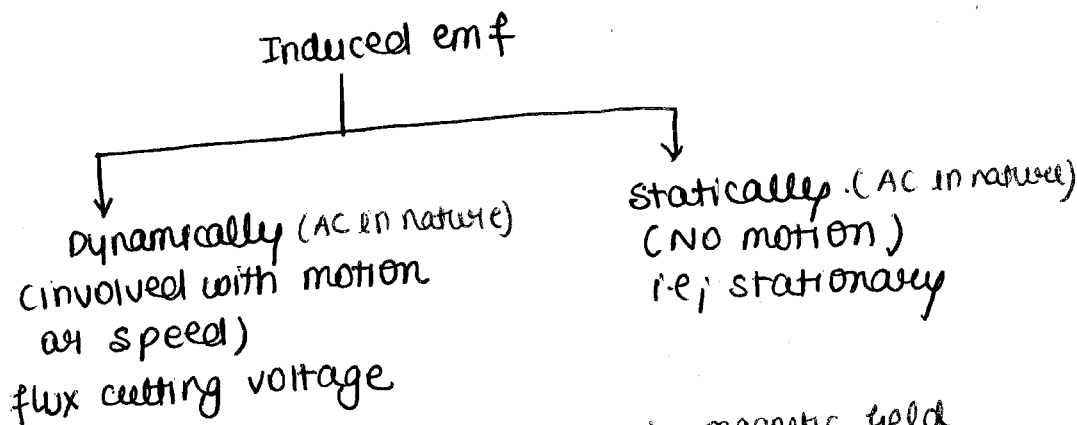 Induced emf
Dynamically (AC in nature)
(involved with motion
or speed)
flux cutting voltage
Statically. (AC in nature)
(NO motion)
i.e; stationary
magnetic field